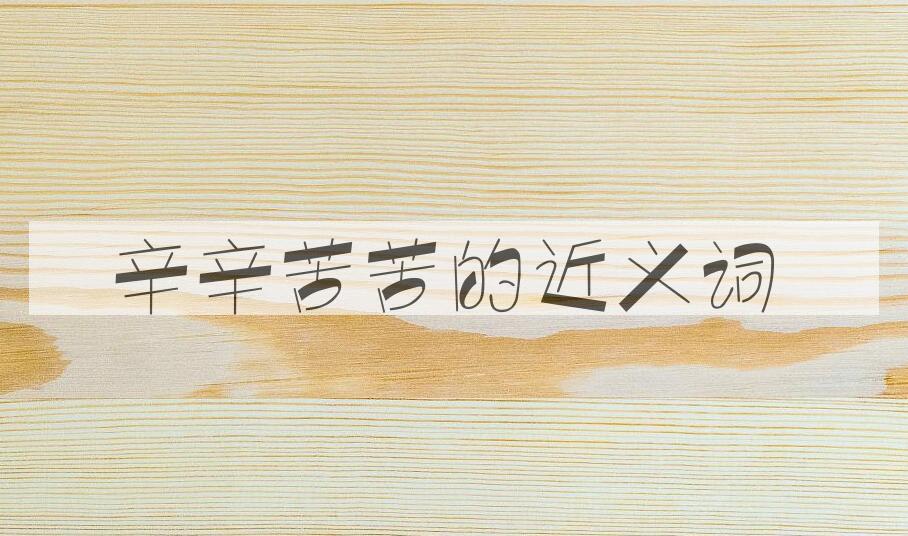 辛辛苦苦的近义词